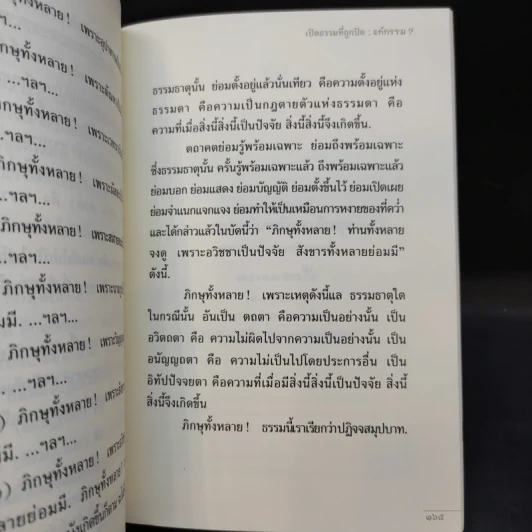 เพราะ
...ฯลฯ...
ภิกษุทั้งหลาย! เพราะ
...ฯลฯ...
ภิกษุทั้งหลาย! เพราะ
...ฯลฯ...
ภิกษุทั้งหลาย! เพราะ
...ฯลฯ...
ภิกษุทั้งหลาย! เพราะ
มี. ...ฯลฯ...
ภิกษุทั้งหลาย! เพราะ
...ฯลฯ...
) ภิกษุทั้งหลาย! เพราะ
มี. ...ฯลฯ...
) ภิกษุทั้งหลาย! เพราะ
ลายย่อมมี. ภิกษุทั้งหลาย!
เปิดธรรมที่ถูกปิด : อทักรรม ?
ธรรมธาตุนั้น ย่อมตั้งอยู่แล้วนั่นเทียว คือความตั้งอยู่แห่ง
ธรรมดา คือความเป็นกฎตายตัวแห่งธรรมดา คือ
ความที่เมื่อสิ่งนี้สิ่งนี้เป็นปัจจัย สิ่งนี้สิ่งนี้จึงเกิดขึ้น.
ตถาคตย่อมรู้พร้อมเฉพาะ ย่อมถึงพร้อมเฉพาะ
ซึ่งธรรมธาตุนั้น ครั้นรู้พร้อมเฉพาะแล้ว ถึงพร้อมเฉพาะแล้ว
ย่อมบอก ย่อมแสดง ย่อมบัญญัติ ย่อมตั้งขึ้นไว้ ย่อมเปิดเผย
ย่อมจำแนกแจกแจง ย่อมทำให้เป็นเหมือนการหงายของที่คว่ำ
และได้กล่าวแล้วในบัดนี้ว่า “ภิกษุทั้งหลาย! ท่านทั้งหลาย
จงดู เพราะอวิชชาเป็นปัจจัย สังขารทั้งหลายย่อมมี”
ดังนี้.
ภิกษุทั้งหลาย! เพราะเหตุดังนี้แล ธรรมธาตุใด
ในกรณีนั้น อันเป็น ตถตา คือความเป็นอย่างนั้น เป็น
อวิตถตา คือ ความไม่ผิดไปจากความเป็นอย่างนั้น เป็น
อนัญญถตา คือ ความไม่เป็นไปโดยประการอื่น เป็น
อิทัปปัจจยตา คือความที่เมื่อมีสิ่งนี้สิ่งนี้เป็นปัจจัย สิ่งนี้
สิ่งนี้จึงเกิดขึ้น
ภิกษุทั้งหลาย! ธรรมนี้เราเรียกว่าปฏิจจสมุปบาท.
๑๖๕